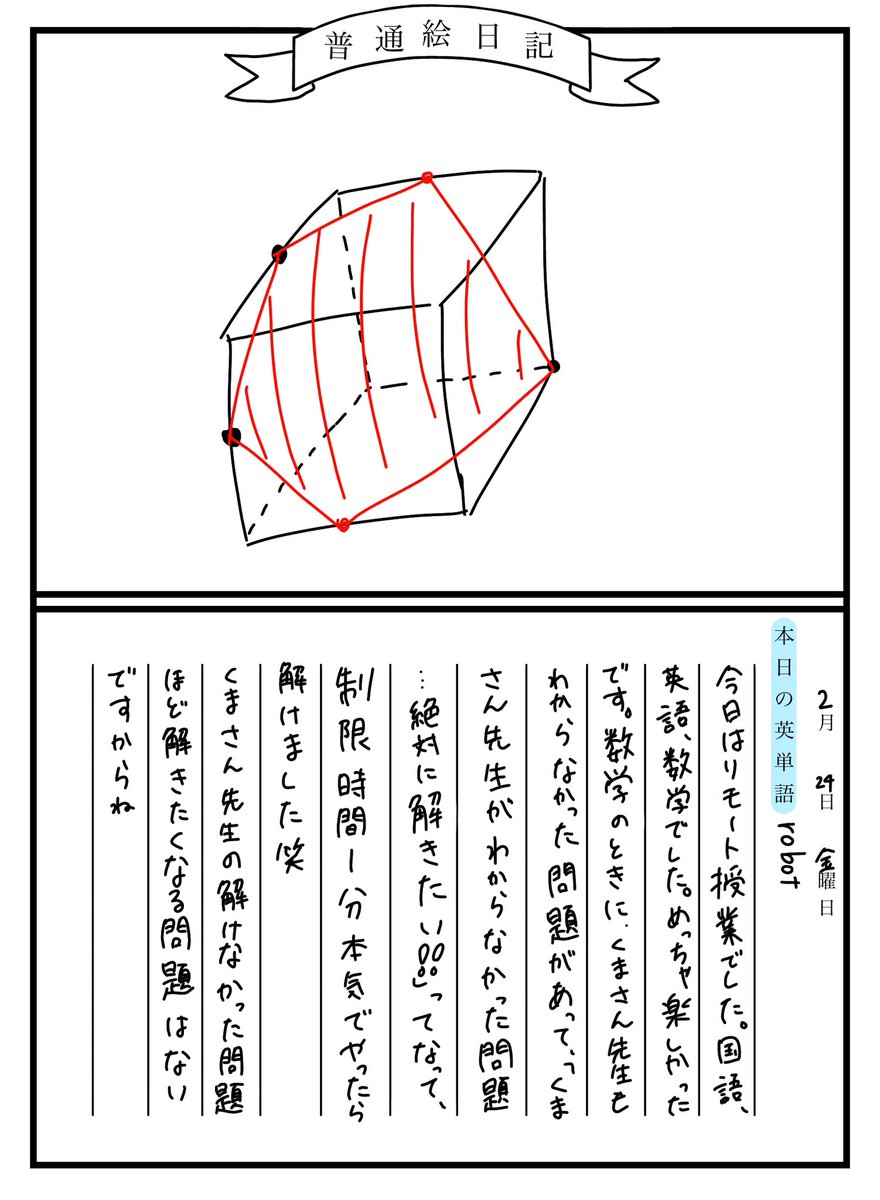 普通絵日記
2月 24日 金曜日
本日の英単語 robot
今日はリモート授業でした。国語、
英語、数学でした。めっちゃ楽しかった
です。数学のときに、くまさん先生も
わからなかった問題があって、「くま
さん先生がわからなかった問題
…絶対に解きたい!!!」ってなって、
制限時間1分本気でやったら
解けました笑
くまさん先生の解けなかった問題
ほど解きたくなる問題はない
ですからね